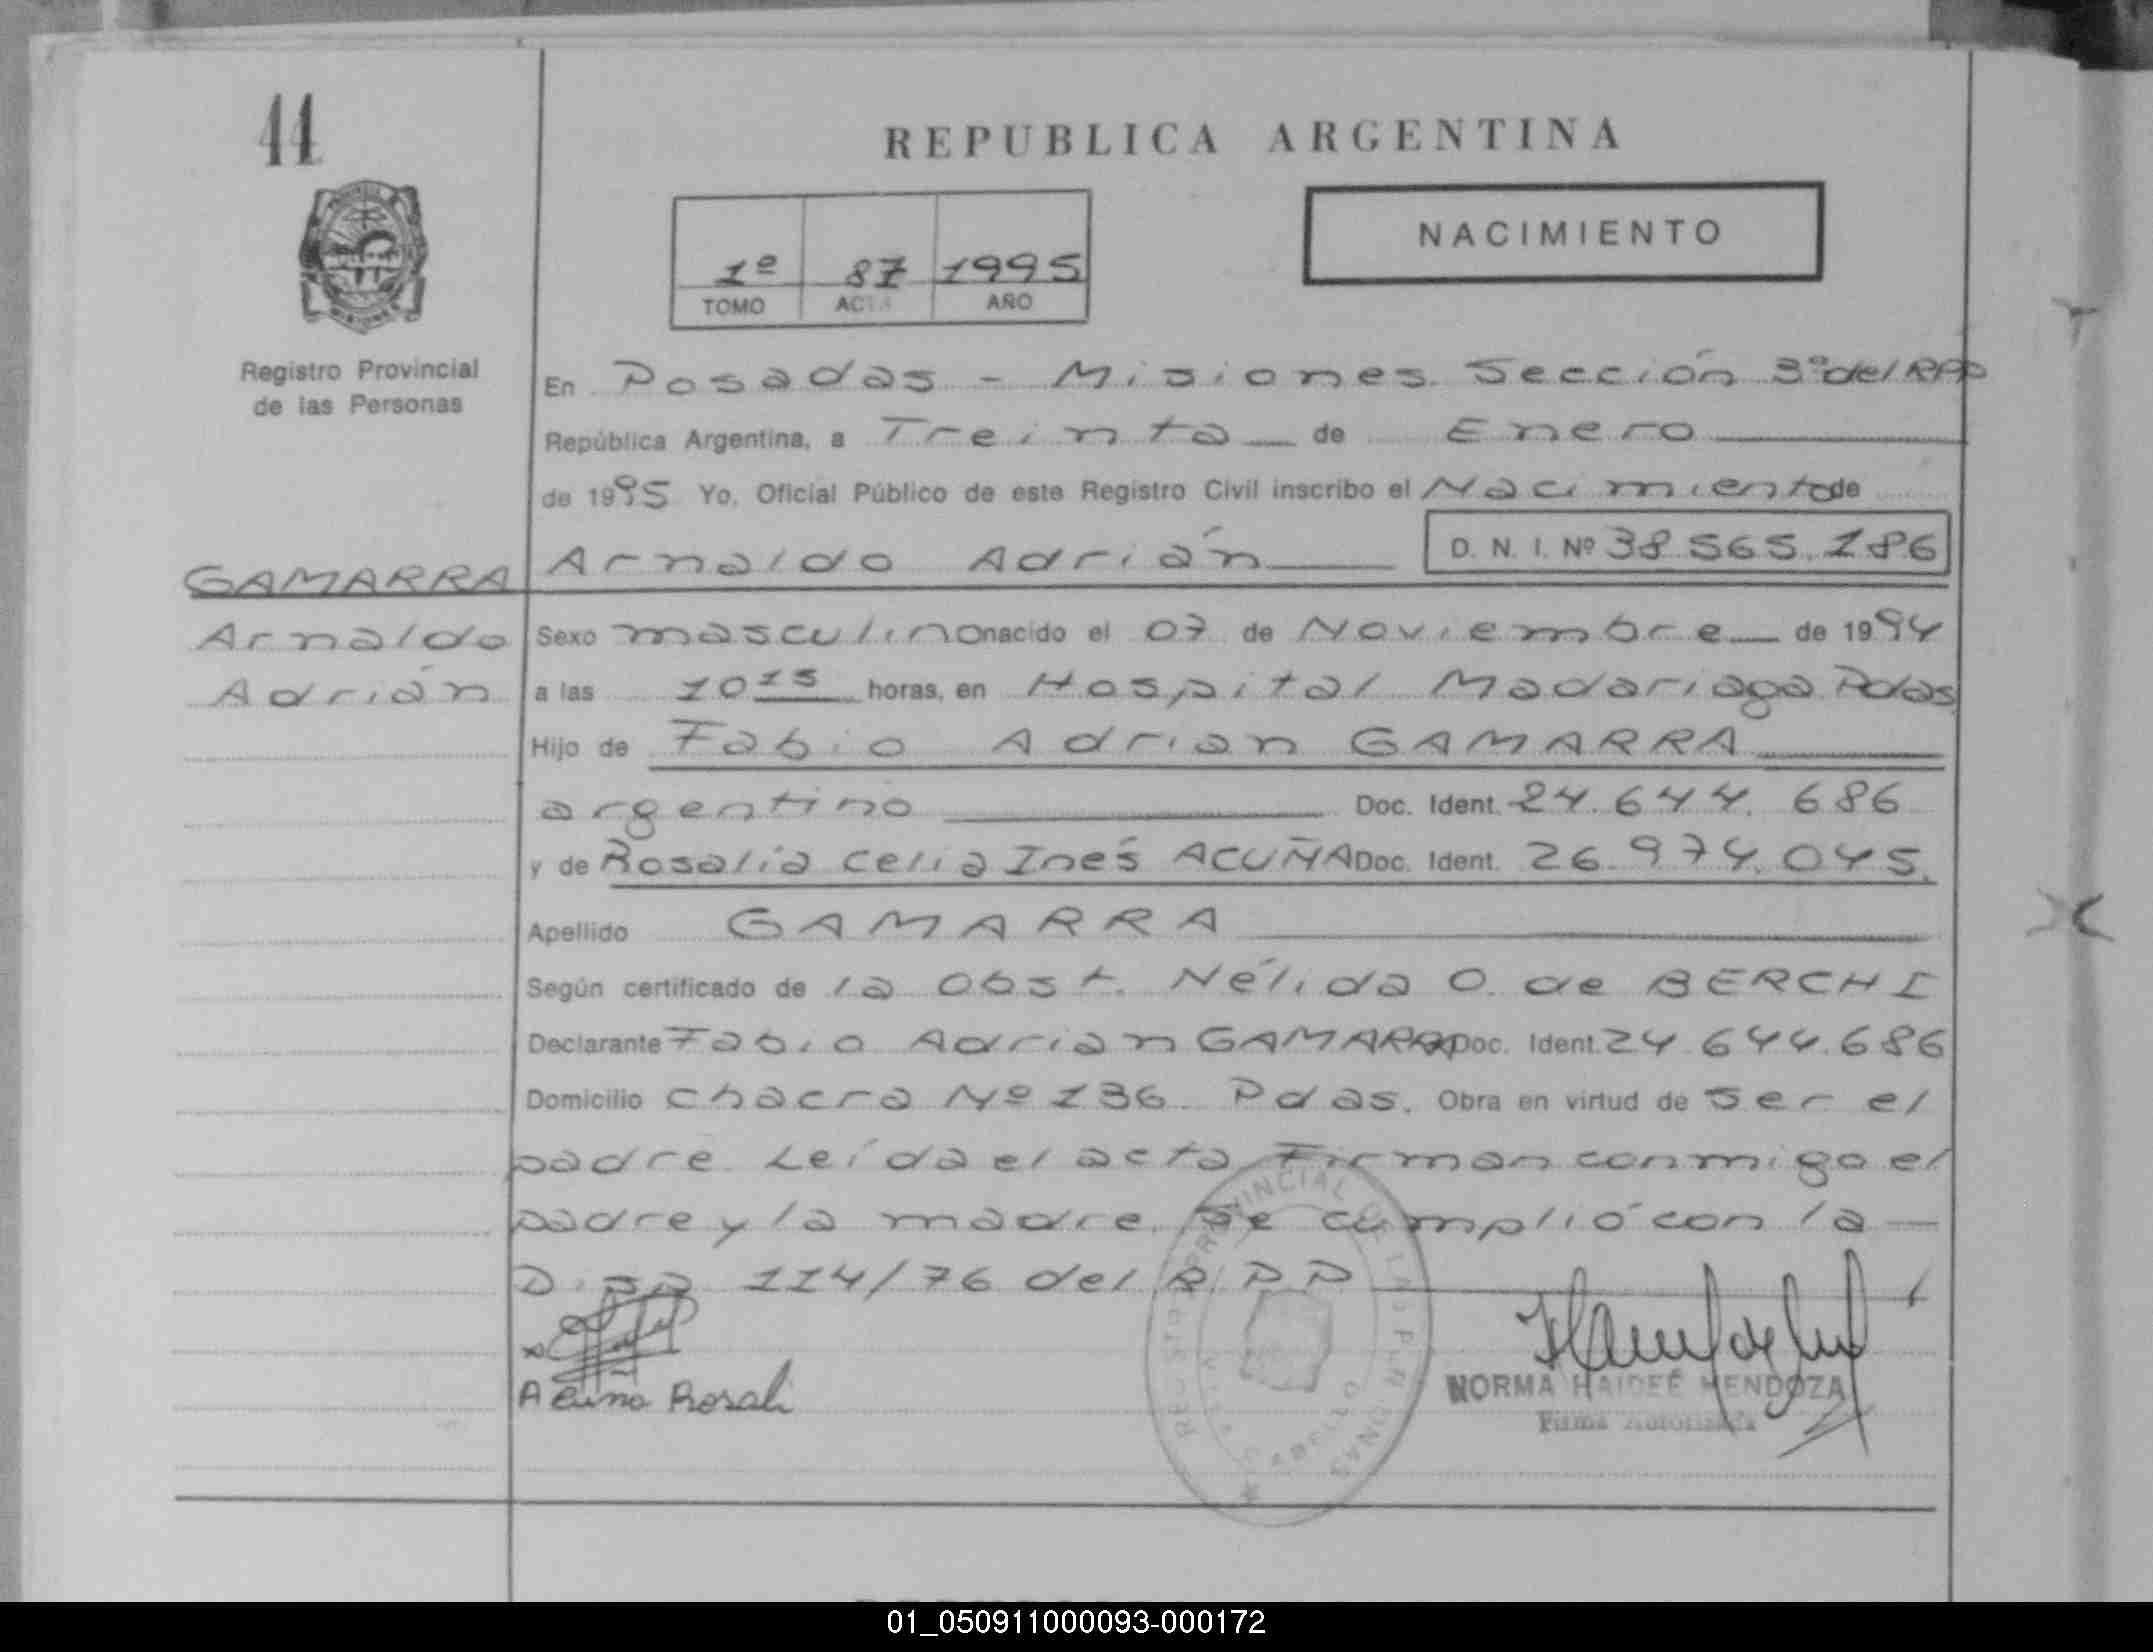 44
REPUBLICA ARGENTINA
NACIMIENTO
1º 87 1995
TOMO ACTA AÑO
Registro Provincial
de las Personas
En Posadas - Misiones. Sección 3º del RPP
República Argentina, a Treinta de Enero
de 1995 Yo, Oficial Público de este Registro Civil inscribo el Nacimiento de
Arnaldo Adrián D. N. I. Nº 38.565.186
GAMARRA
Arnaldo
Adrián
Sexo masculino nacido el 07 de Noviembre de 1994
a las 10 15 horas, en Hospital Madariaga Pdas
Hijo de Fabio Adrian GAMARRA
argentino Doc. Ident. 24.644.686
y de Rosalía Celia Inés ACUÑA Doc. Ident. 26.974.045.
Apellido GAMARRA
Según certificado de la Obst. Nélida O. de BERCHI
Declarante Fabio Adrian GAMARRA Doc. Ident. 24.644.686
Domicilio Chacra Nº 136. Pdas. Obra en virtud de ser el
padre. Leída el acta Firman conmigo el
padre y la madre. Se cumplió con la
Disp. 114/76 del R.P.P
Acuña Rosali
NORMA HAIDEÉ MENDOZA
Firma Autorizada
REGISTRO PROVINCIAL DE LAS PERSONAS
01_050911000093-000172